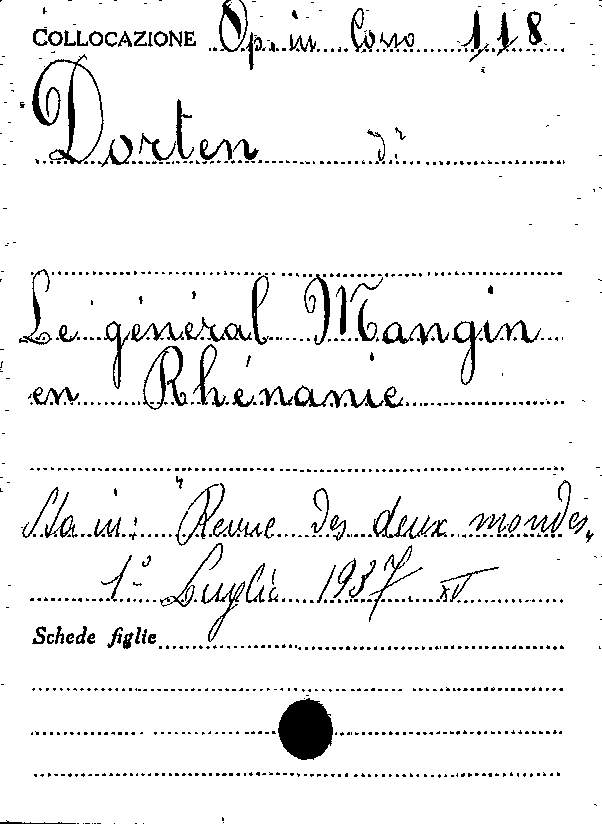 COLLOCAZIONE Op. in Corso 118
Dorten dr
Le général Mangin
en Rhénanie
Sta in: "Revue des deux mondes„
1º Luglio 1937 XV
Schede figlie